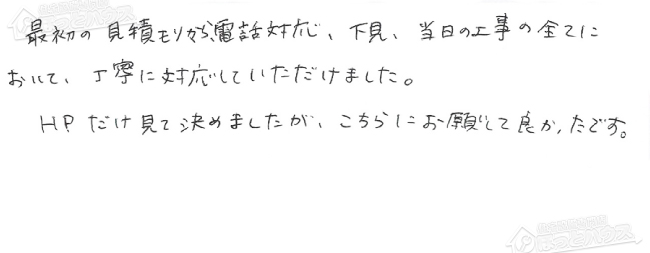 最初の見積もりから電話対応、下見、当日の工事の全てに
おいて、丁寧に対応していただけました。
HPだけ見て決めましたが、こちらにお願いして良かったです。